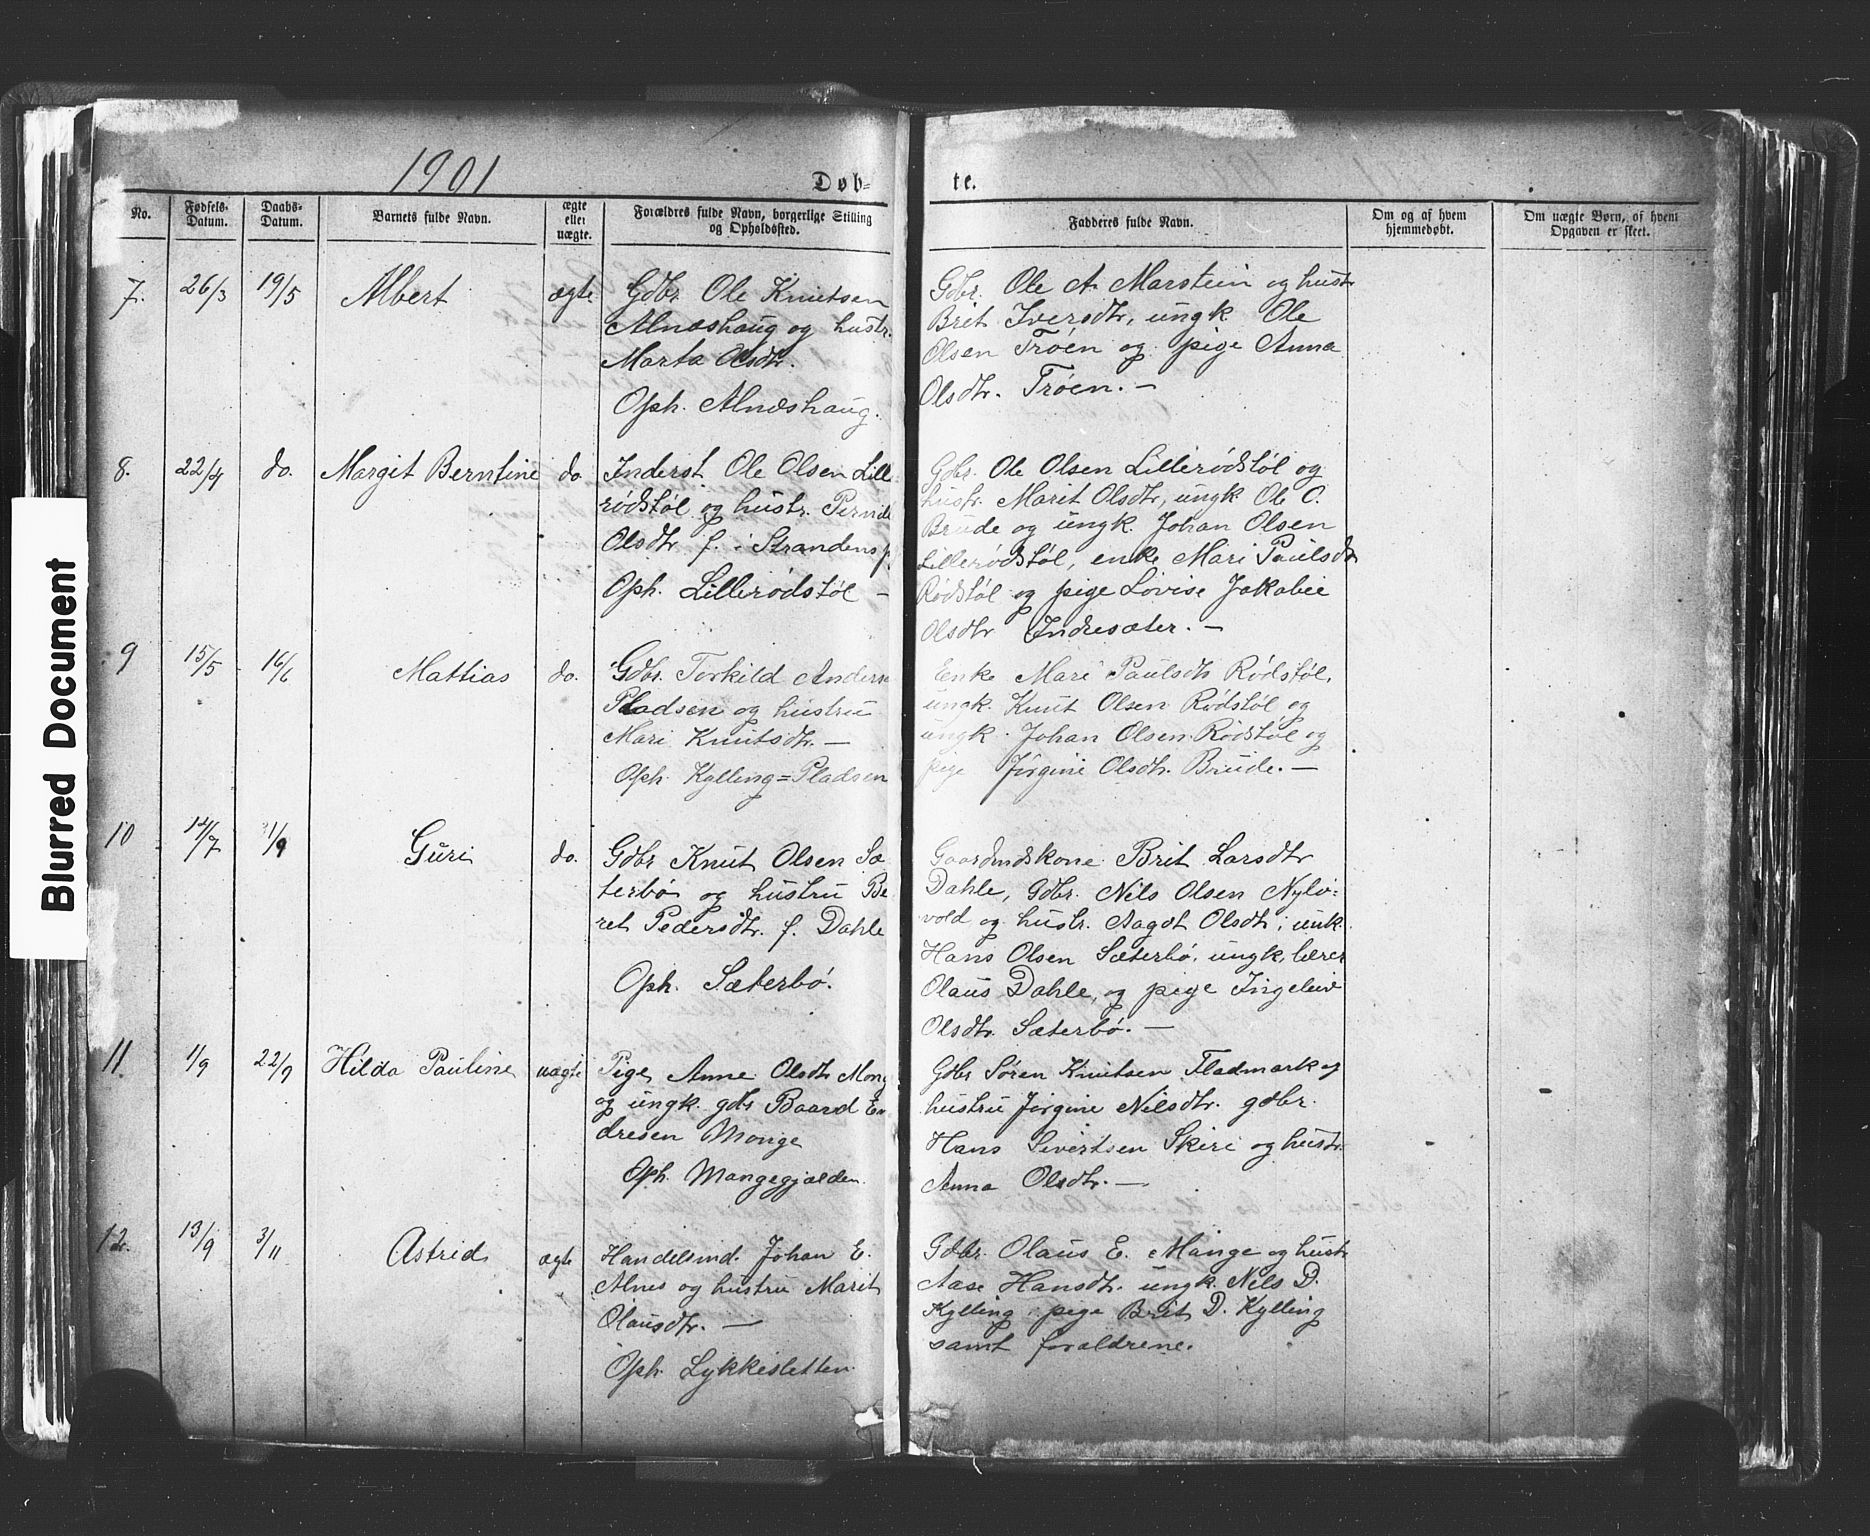 Blurred Document
1901
Døb=
te.
No.
Fødsels-Datum.
Daabs-Datum.
Barnets fulde Navn.
ægte eller uægte.
Forældres fulde Navn, borgerlige Stilling og Opholdssted.
Fadderes fulde Navn.
Om og af hvem hjemmedøbt.
Om uægte Børn, af hvem Opgaven er skeet.
7. 26/3 19/5 Albert ægte
Gdbr. Ole Knutsen
Alneshaug og hustr.
Marta Olsdtr.
Oph. Alneshaug.
Gdbr. Ole A. Marstein og hustr.
Brit Iversdtr, ungk. Ole
Olsen Trøen og pige Anna
Olsdtr. Trøen. —
8. 22/4 do. Margit Berntine do.
Inderst. Ole Olsen Lille-
rødstøl og hustr. Pernil
Olsdtr. f. i Strandens p
Oph. Lillerødstøl —
Gdbr. Ole Olsen Lillerødstøl og
hustr. Marit Olsdtr, ungk. Ole O.
Brude og ungk. Johan Olsen
Lillerødstøl, enke Mari Paulsdtr
Rødstøl og pige Lovise Jakobie
Olsdtr Indresæter. —
9 15/5 16/6 Mattias do.
Gdbr. Torkild Anders
Pladsen og hustru
Mari Knutsdtr. —
Oph. Kylling=Pladsen
Enke Mari Paulsdtr Rødstøl,
ungk. Knut Olsen Rødstøl og
ungk. Johan Olsen Rødstøl og
pige Jørgine Olsdtr. Brude. —
10 14/7 1/9 Guri do.
Gdbr Knut Olsen Sæ
terbø og hustru Be
ret Pedersdtr. f. Dahle
Oph. Sæterbø.
Gaardmdskone Brit Larsdtr
Dahle, Gdbr. Nils Olsen Nylø-
vold og hustr. Aagot Olsdtr, unk.
Hans Olsen Sæterbø, ungk. lærer
Olaus Dahle, og pige Ingeleiv
Olsdtr. Sæterbø. —
11. 1/9 22/9 Hilda Pauline uægte
Pige Anne Olsdtr Mong
og ungk. gdbr Baard En
dresen Monge
Oph. Mongegjælden.
Gdbr Søren Knutsen Fladmark og
hustru Jørgine Nilsdtr. gdbr.
Hans Sivertsen Skiri og hustr.
Anna Olsdtr. —
12. 13/9 3/11 Astrid ægte
Handelsmd. Johan E.
Alnes og hustru Marit
Olausdtr. —
Oph. Lykkesletten
Gdbr. Olaus E. Monge og hustr
Aase Hansdtr. ungk. Nils D.
Kylling, pige Brit D. Kylling
samt forældrene.